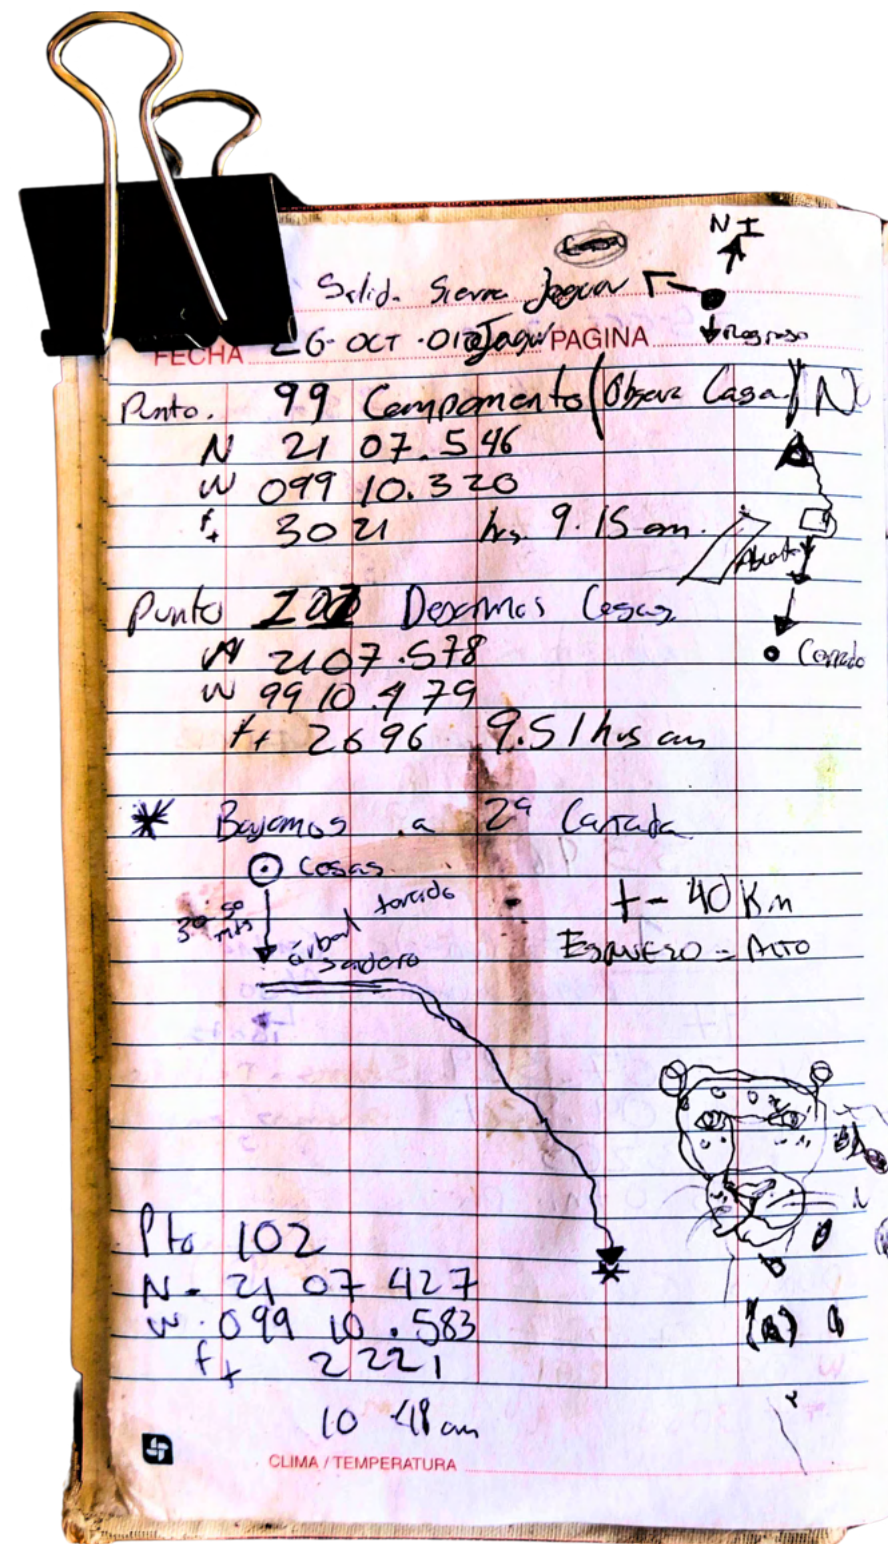 N I
Salid. Sierra Jaguar
Regreso
FECHA 26- OCT -01 Jaguar PAGINA
Punto. 99 Campamento (Observ Casa) No
N 21 07.546
W 099 10.320
ft 3021 hrs. 9.15 am.
Abierto
Punto 101 Dejamos Cosas
N 21 07.578
W 99 10.479
ft 2696 9.51 hrs am
Cerrado
* Bajamos a 2ª Cañada
Cosas
30 50 mts
árbol torcido
sendero
+- 40 Km
ESFUERZO = ALTO
Pto 102
N - 21 07 427
W. 099 10.583
ft 2221
10 48 am
CLIMA / TEMPERATURA